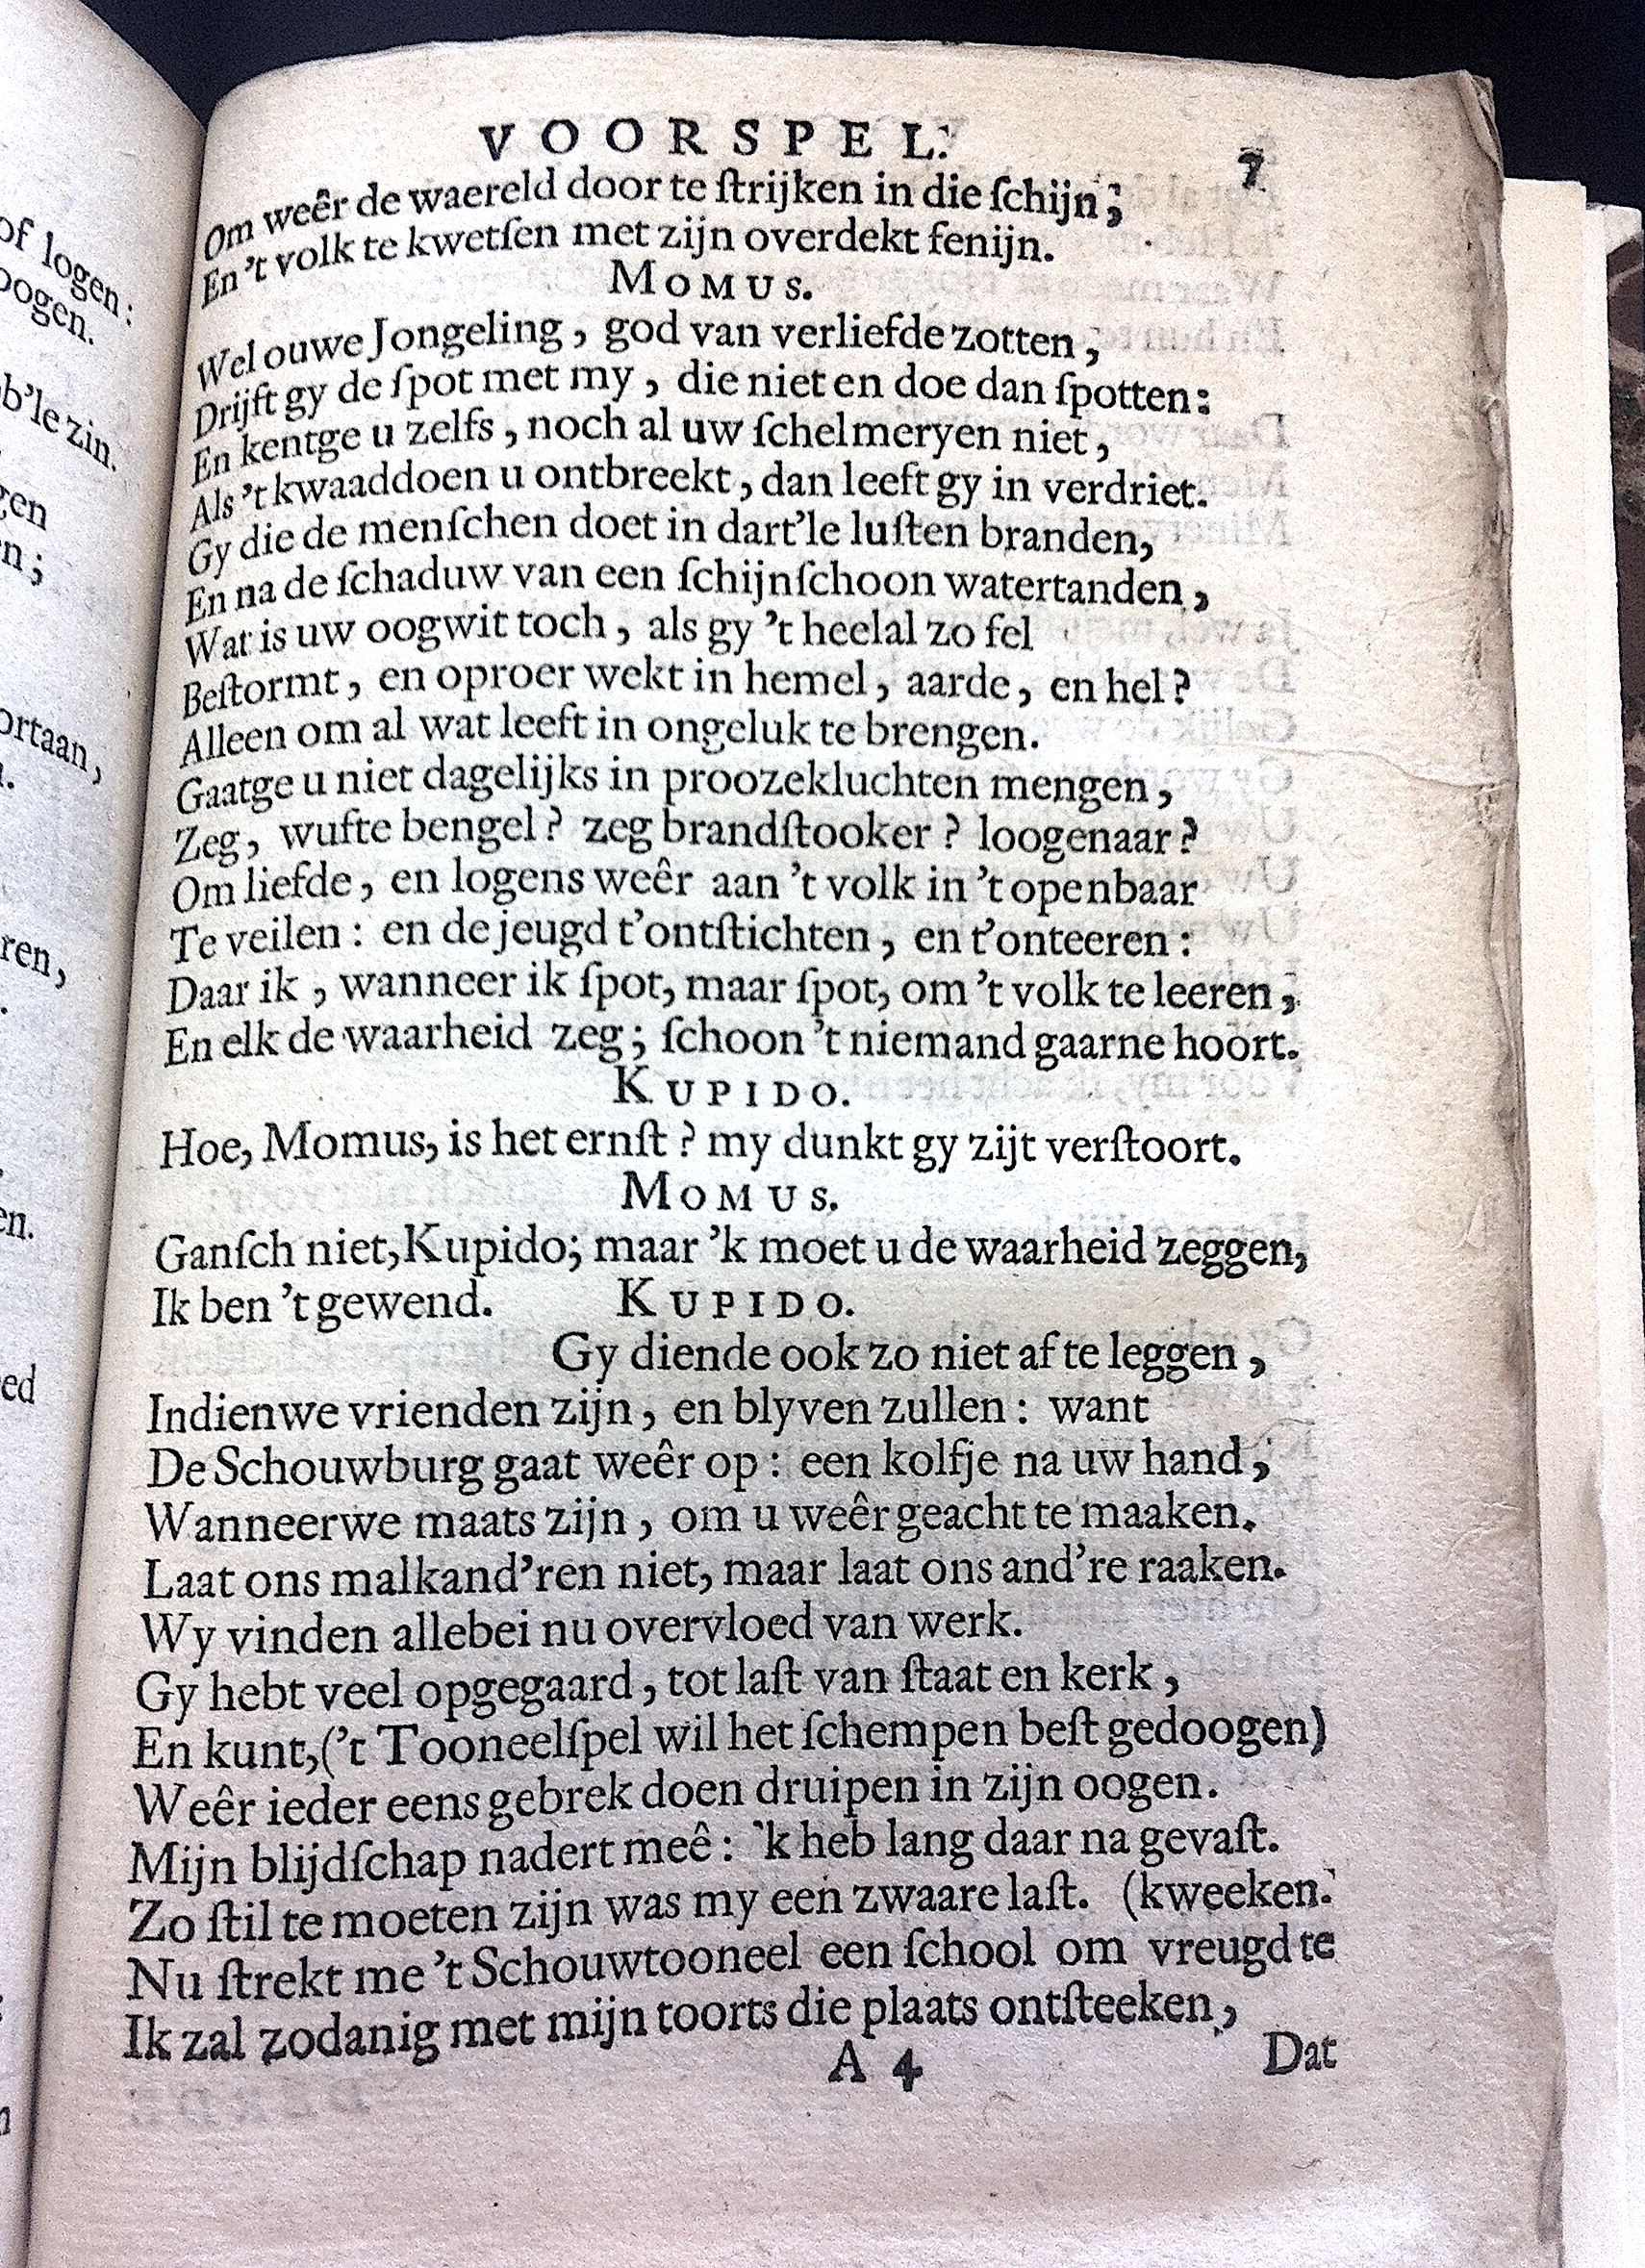 VOORSPEL. 7
Om weêr de waereld door te ſtrijken in die ſchijn;
En 't volk te kwetſen met zijn overdekt fenijn.
MOMUS.
Wel ouwe Jongeling, god van verliefde zotten,
Drijft gy de ſpot met my, die niet en doe dan ſpotten:
En kentge u zelfs, noch al uw ſchelmeryen niet,
Als 't kwaaddoen u ontbreekt, dan leeft gy in verdriet.
Gy die de menſchen doet in dart'le luſten branden,
En na de ſchaduw van een ſchijnſchoon watertanden,
Wat is uw oogwit toch, als gy 't heelal zo fel
Beſtormt, en oproer wekt in hemel, aarde, en hel?
Alleen om al wat leeft in ongeluk te brengen.
Gaatge u niet dagelijks in proozekluchten mengen,
Zeg, wufte bengel? zeg brandſtooker? loogenaar?
Om liefde, en logens weêr aan 't volk in 't openbaar
Te veilen: en de jeugd t'ontſtichten, en t'onteeren:
Daar ik, wanneer ik ſpot, maar ſpot, om 't volk te leeren,
En elk de waarheid zeg; ſchoon 't niemand gaarne hoort.
KUPIDO.
Hoe, Momus, is het ernſt? my dunkt gy zijt verſtoort.
MOMUS.
Ganſch niet, Kupido; maar 'k moet u de waarheid zeggen,
Ik ben 't gewend. KUPIDO.
Gy diende ook zo niet af te leggen,
Indienwe vrienden zijn, en blyven zullen: want
De Schouwburg gaat weêr op: een kolfje na uw hand,
Wanneerwe maats zijn, om u weêr geacht te maaken.
Laat ons malkand'ren niet, maar laat ons and're raaken.
Wy vinden allebei nu overvloed van werk.
Gy hebt veel opgegaard, tot laſt van ſtaat en kerk,
En kunt, ('t Tooneelſpel wil het ſchempen beſt gedoogen)
Weêr ieder eens gebrek doen druipen in zijn oogen.
Mijn blijdſchap nadert meê: 'k heb lang daar na gevaſt.
Zo ſtil te moeten zijn was my een zwaare laſt. (kweeken.
Nu ſtrekt me 't Schouwtooneel een ſchool om vreugd te
Ik zal zodanig met mijn toorts die plaats ontſteeken,
A 4 Dat
of logen:
oogen.
b'le zin.
gen
n;
ortaan,
ren,
en.
ed